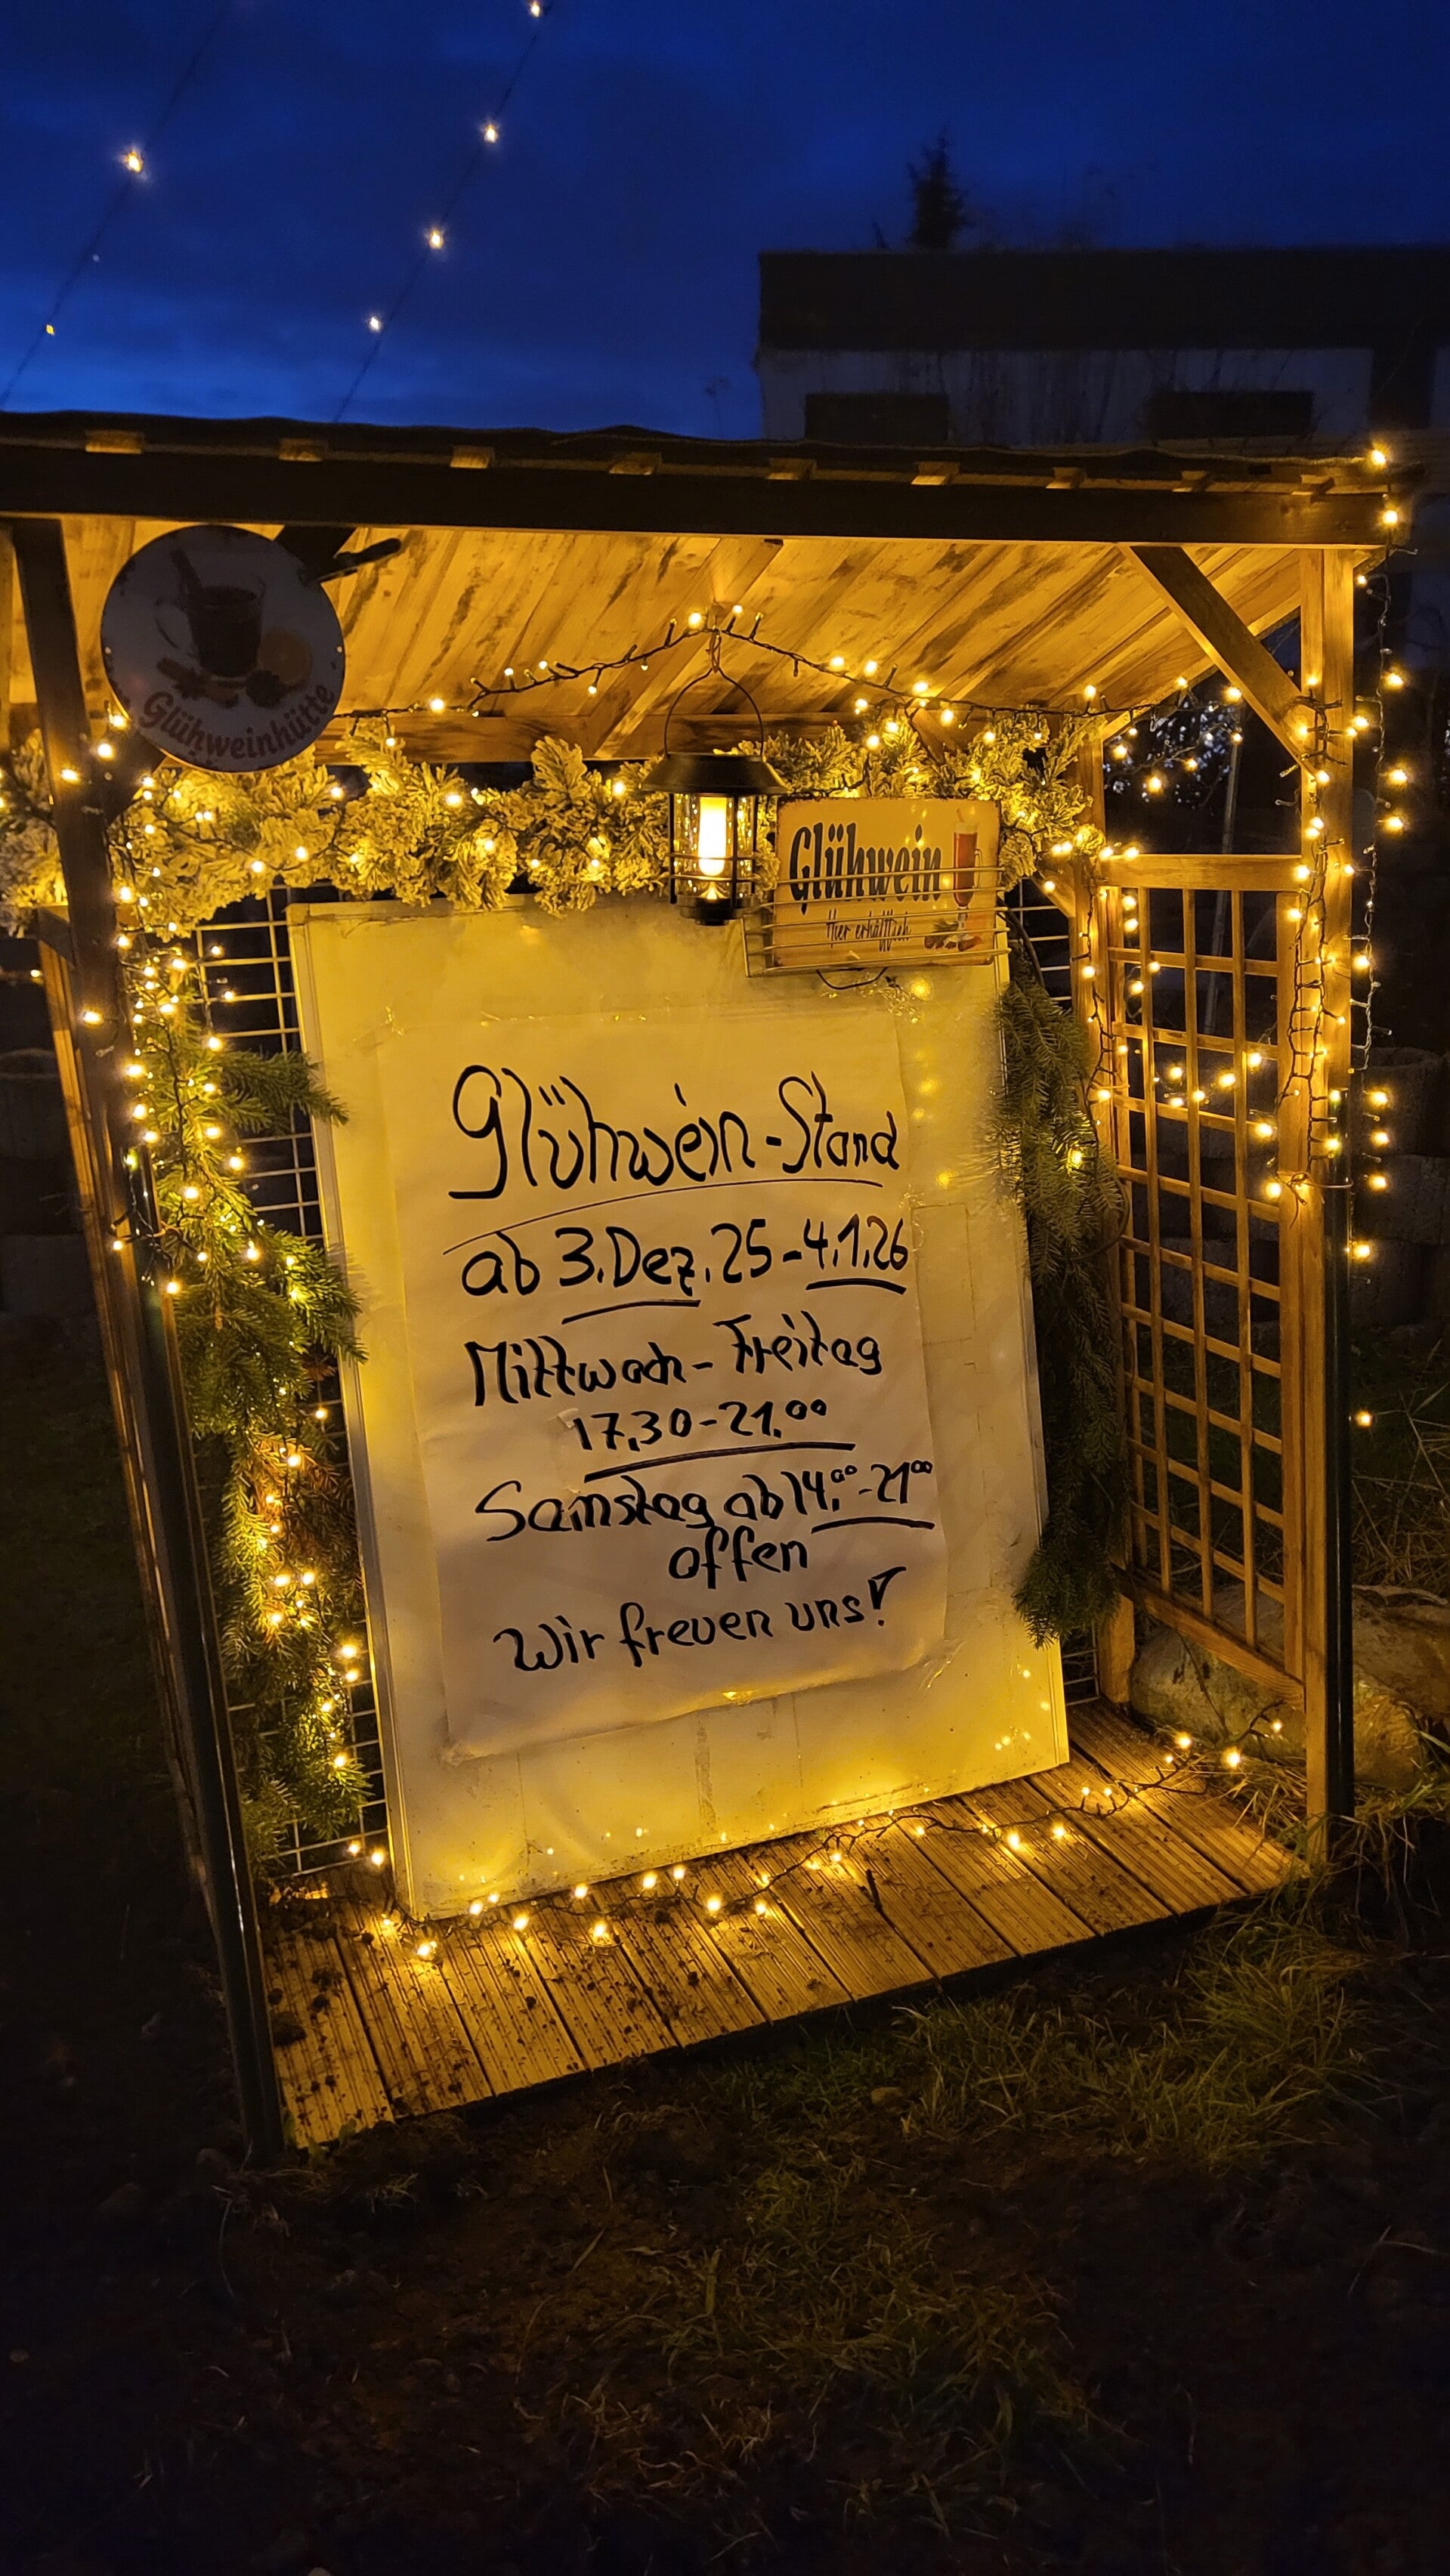 Glühweinhütte
Glühwein
Hier erhältlich
Glühwein-Stand
ab 3.Dez.25-4.1.26
Mittwoch-Freitag
17.30-21.00
Samstag ab 14.00-2100
offen
Wir freuen uns!